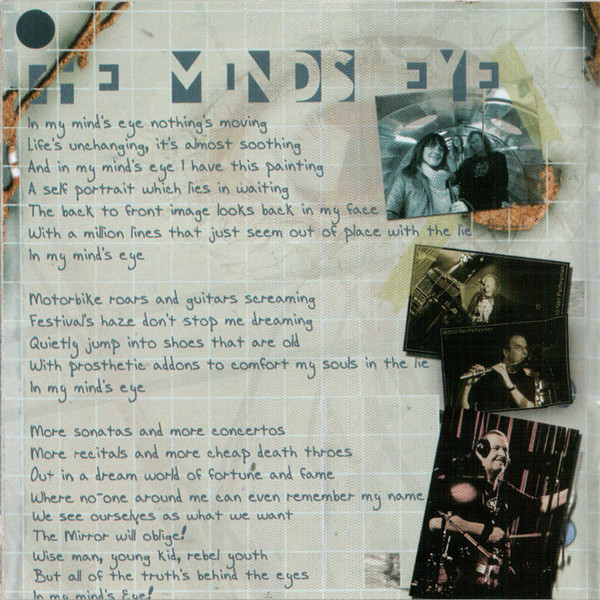 THE MINDS EYE
In my mind's eye nothing's moving
Life's unchanging, it's almost soothing
And in my mind's eye I have this painting
A self portrait which lies in waiting
The back to front image looks back in my face
With a million lines that just seem out of place with the lie
In my mind's eye
Motorbike roars and guitars screaming
Festival's haze don't stop me dreaming
Quietly jump into shoes that are old
With prosthetic addons to comfort my souls in the lie
In my mind's eye
More sonatas and more concertos
More recitals and more cheap death throes
Out in a dream world of fortune and fame
Where no-one around me can even remember my name
We see ourselves as what we want
The Mirror will oblige!
Wise man, young kid, rebel youth
But all of the truth's behind the eyes
In my mind's Eye!